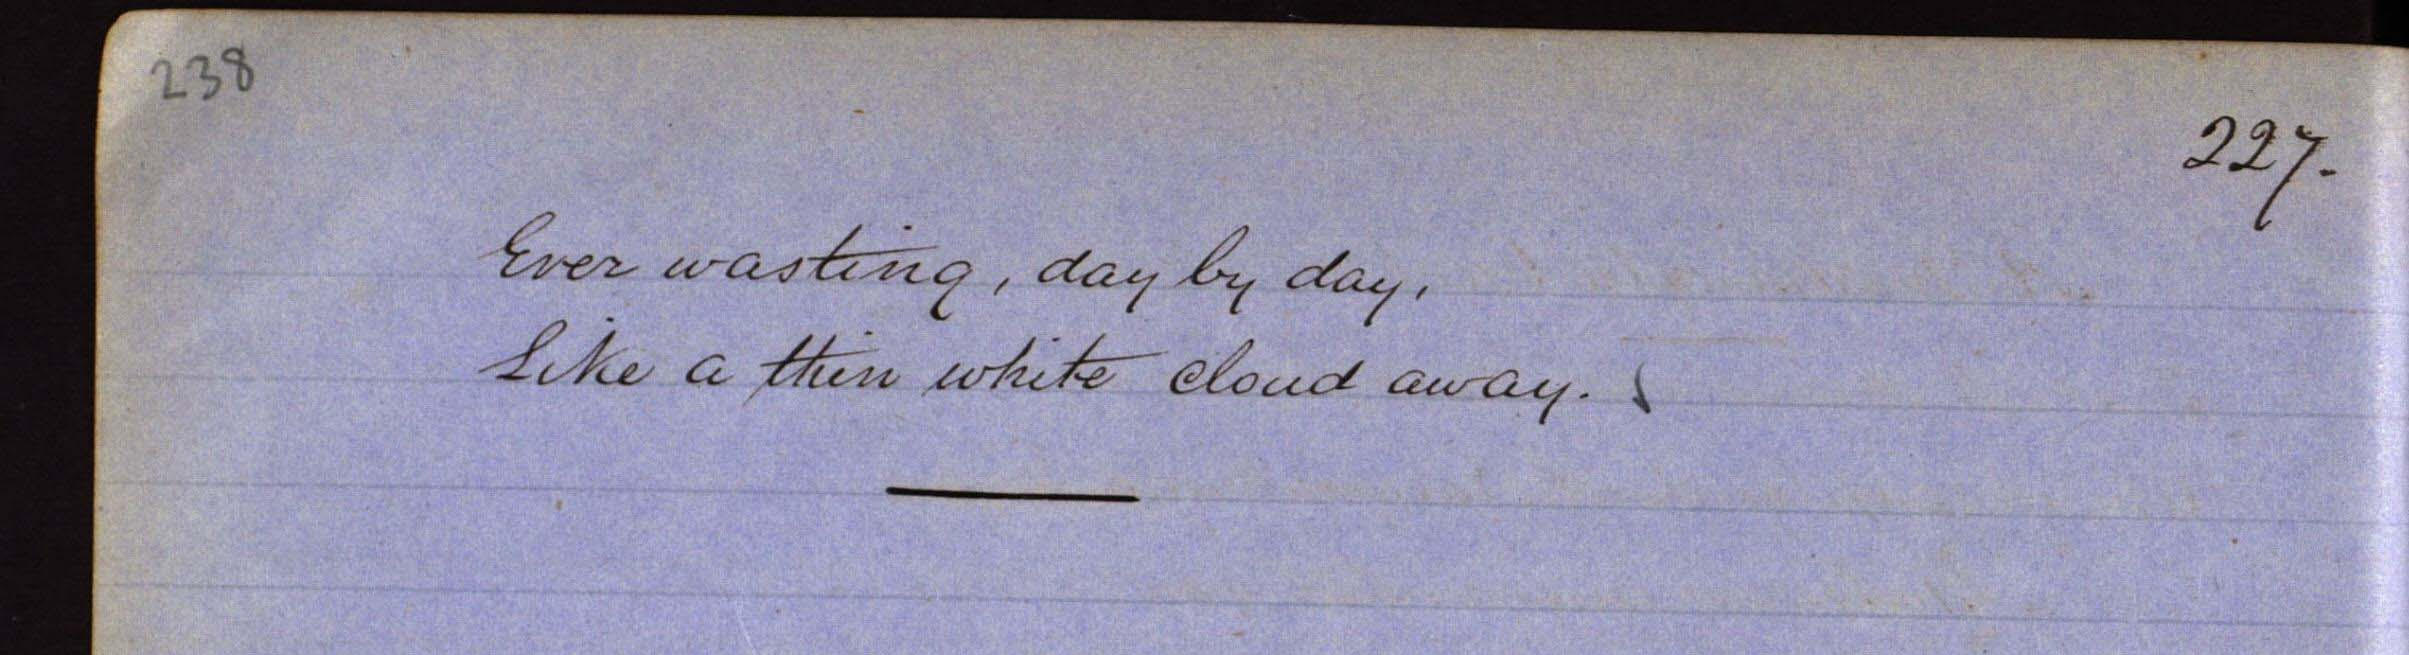 238
227.
Ever wasting, day by day,
Like a thin white cloud away.